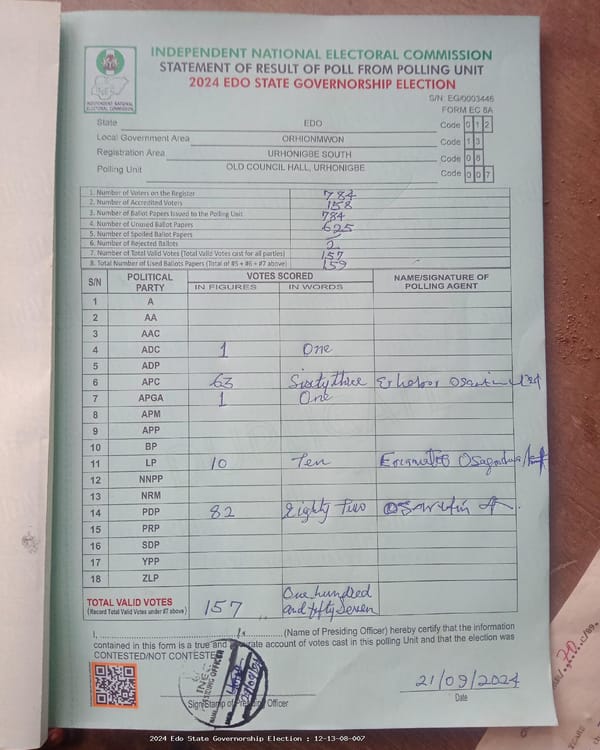 INDEPENDENT NATIONAL ELECTORAL COMMISSION
STATEMENT OF RESULT OF POLL FROM POLLING UNIT
2024 EDO STATE GOVERNORSHIP ELECTION
INDEPENDENT NATIONAL ELECTORAL COMMISSION
S/N: EG/0003446
FORM EC 8A
State EDO Code 0 1 2
Local Government Area ORHIONMWON Code 1 3
Registration Area URHONIGBE SOUTH Code 0 8
Polling Unit OLD COUNCIL HALL, URHONIGBE Code 0 0 7
1. Number of Voters on the Register 784
2. Number of Accredited Voters 158
3. Number of Ballot Papers Issued to the Polling Unit 784
4. Number of Unused Ballot Papers 625
5. Number of Spoiled Ballot Papers
6. Number of Rejected Ballots 2
7. Number of Total Valid Votes (Total Valid Votes cast for all parties) 157
8. Total Number of Used Ballots Papers (Total of #5 + #6 + #7 above) 159
S/N POLITICAL PARTY VOTES SCORED NAME/SIGNATURE OF POLLING AGENT
IN FIGURES IN WORDS
1 A
2 AA
3 AAC
4 ADC 1 One
5 ADP
6 APC 63 Sixty three
7 APGA 1 One
8 APM
9 APP
10 BP
11 LP 10 Ten
12 NNPP
13 NRM
14 PDP 82 Eighty Two
15 PRP
16 SDP
17 YPP
18 ZLP
TOTAL VALID VOTES 157 One hundred and fifty seven
(Record Total Valid Votes under #7 above)
I, (Name of Presiding Officer) hereby certify that the information
contained in this form is a true and account of votes cast in this polling Unit and that the election was
CONTESTED/NOT CONTESTED
INEC
21/09/2024
Sign/Stamp of Presiding Officer Date
2024 Edo State Governorship Election : 12-13-08-007